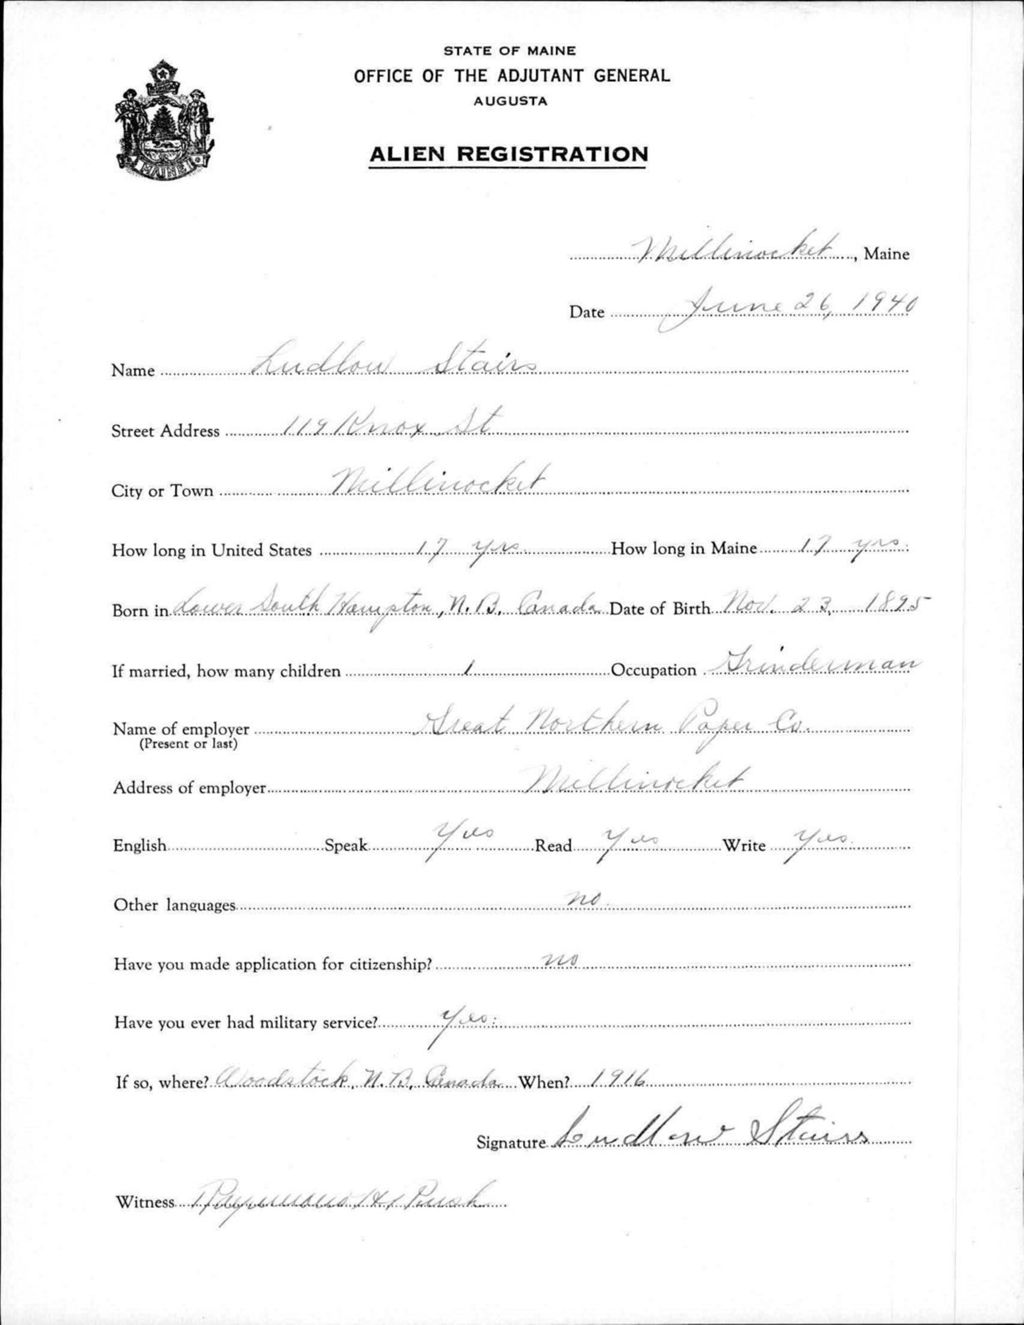 STATE OF MAINE
OFFICE OF THE ADJUTANT GENERAL
AUGUSTA
MAINE
ALIEN REGISTRATION
Millinocket, Maine
Date June 26, 1940
Name Ludlow Stairs
Street Address 119 Knox St
City or Town Millinocket
How long in United States 17 yrs. How long in Maine 17 yrs.
Born in Lower South Hampton, N.B. Canada Date of Birth Nov. 23, 1895
If married, how many children 1 Occupation Grinderman
Name of employer Great Northern Paper Co.
(Present or last)
Address of employer Millinocket
English Speak Yes Read Yes Write Yes
Other languages no.
Have you made application for citizenship? no
Have you ever had military service? Yes.
If so, where? Woodstock, N.B. Canada When? 1916
Signature Ludlow Stairs
Witness Raymond H. Rush